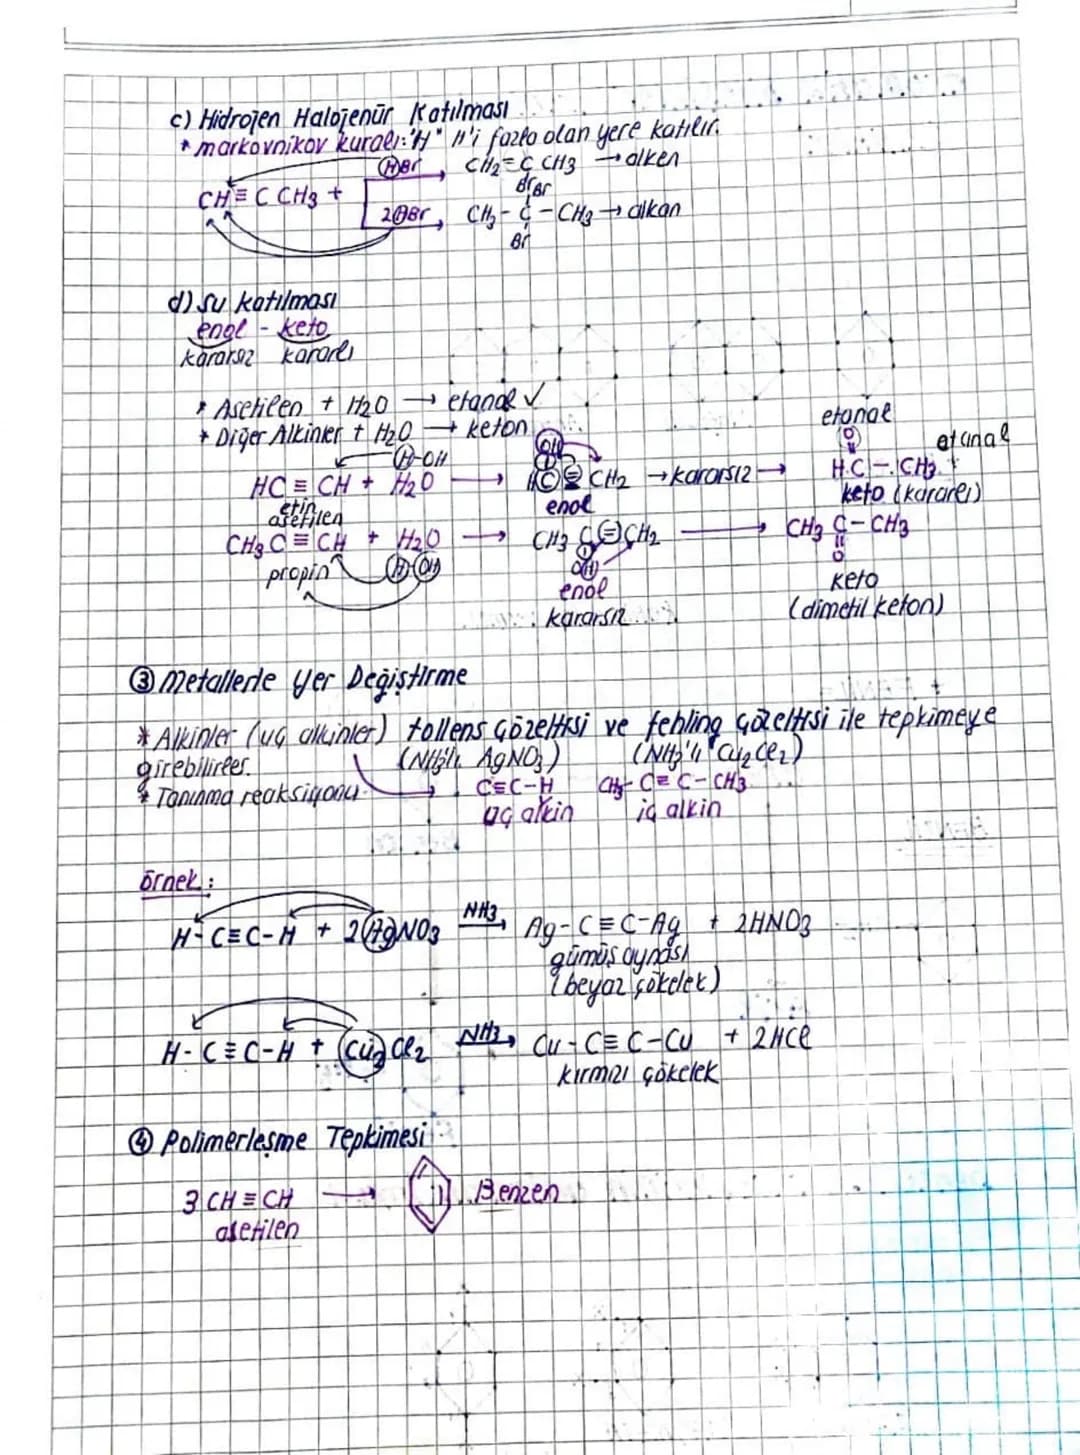 c) Hidrojen Halojenür Katılması
* markovnikov kuralı: "H" H'i fazla olan yere katılır.
HBr CH2=C CH3 → alken
Br
CH≡C CH3 +
Br
2HBr CH3-C-CH3 → alkan
Br
d) Su katılması
enol - keto
kararsız kararlı
* Asetilen + H2O → etanal ✓
* Diğer Alkinler + H2O → keton
etanal
etanal
H-OH
OH
O
HC≡CH + H2O → HC=CH2 → kararsız → H.C-CH3
etin
asetilen
enol
keto (kararlı)
CH3 C≡CH + H2O → CH3 C=CH2 → CH3 C-CH3
propin
H OH
OH
O
enol
kararsız
keto
(dimetil keton)
③ Metallerle Yer Değiştirme
* Alkinler (uç alkinler) tollens çözeltisi ve fehling çözeltisi ile tepkimeye
girebilirler. (NH3'lı AgNO3) (NH3'lı Cu2Cl2)
* Tanınma reaksiyonu → C≡C-H CH3-C≡C-CH3
uç alkin iç alkin
örnek:
H-C≡C-H + 2AgNO3 NH3→ Ag-C≡C-Ag + 2HNO3
gümüş aynası
(beyaz çökelek)
H-C≡C-H + Cu2Cl2 NH3→ Cu-C≡C-Cu + 2HCl
kırmızı çökelek
④ Polimerleşme Tepkimesi
3 CH≡CH → Benzen
asetilen